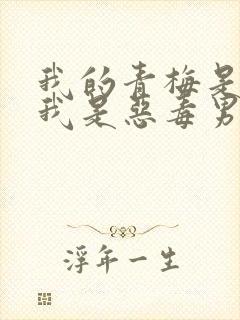 我的青梅是
我是惡毒男
浮年一生